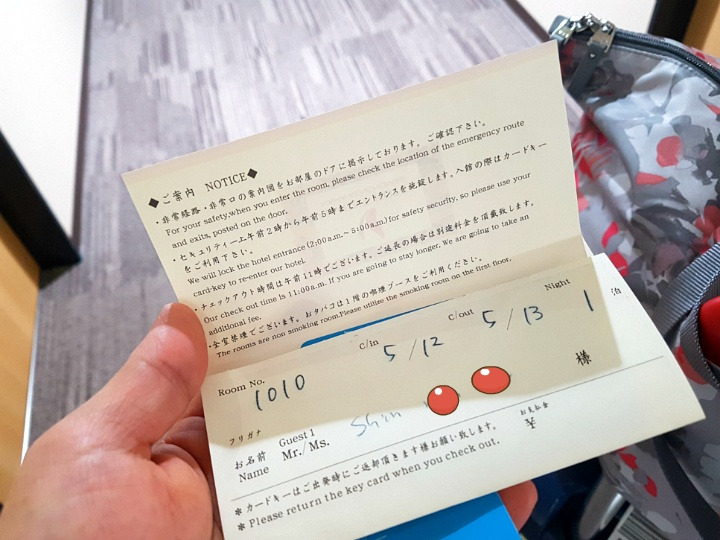 ◆ご案内 NOTICE◆
・非常経路・非常口の案内図をお部屋のドアに掲示しております。ご確認下さい。
For your safety,when you enter the room, please check the location of the emergency route
and exits, posted on the door.
・セキュリティー上午前2時から午前5時までエントランスを施錠します。入館の際はカードキー
をご利用下さい。
We will lock the hotel entrance (2:00a.m.~5:00a.m.) for safety security, so please use your
card-key to re-enter our hotel.
・チェックアウト時間は午前11時でございます。ご延長の場合は別途料金を頂戴致します。
Our check out time is 11:00a.m. If you are going to stay longer, We are going to take an
additional fee.
・全室禁煙でございます。おタバコは1階の喫煙ブースをご利用ください。
The rooms are non smoking room.Please utilize the smoking room on the first floor.
Room No. 1010 c/in 5/12 c/out 5/13 Night 1 泊
フリガナ
お名前 Guest 1 様
Name Mr./Ms. Shin
お支払金
¥
＊カードキーはご出発時にご返却頂きます様お願い致します。
＊Please return the key card when you check out.